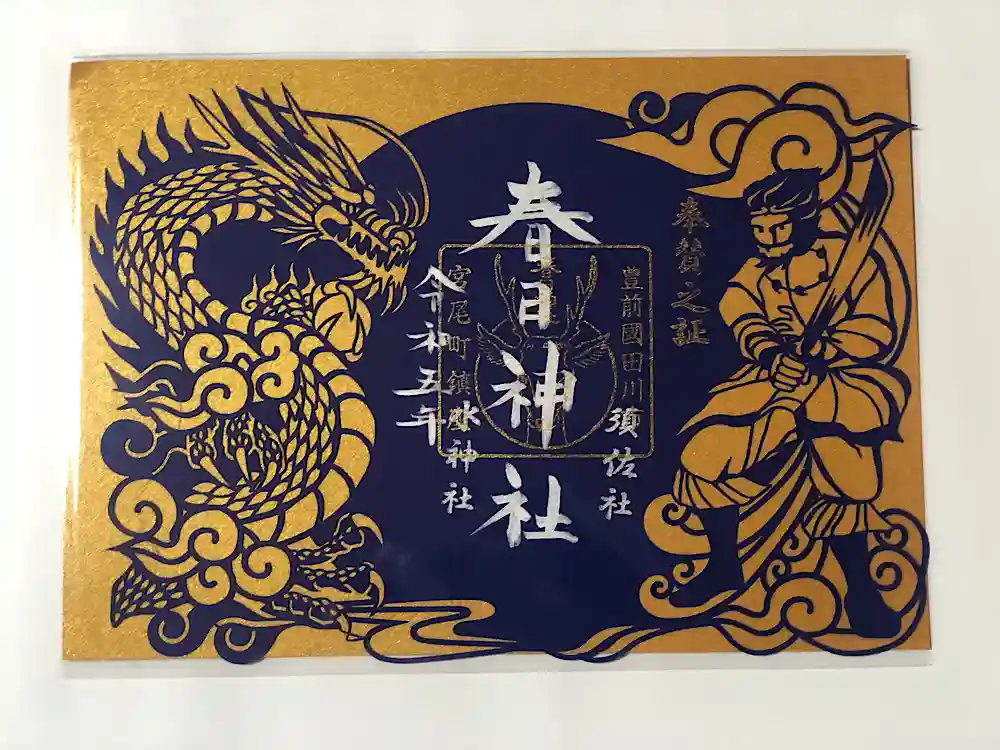 奉賛之証
豊前國田川
須佐社
春日神社
宮尾町鎮
水神社
令和五年